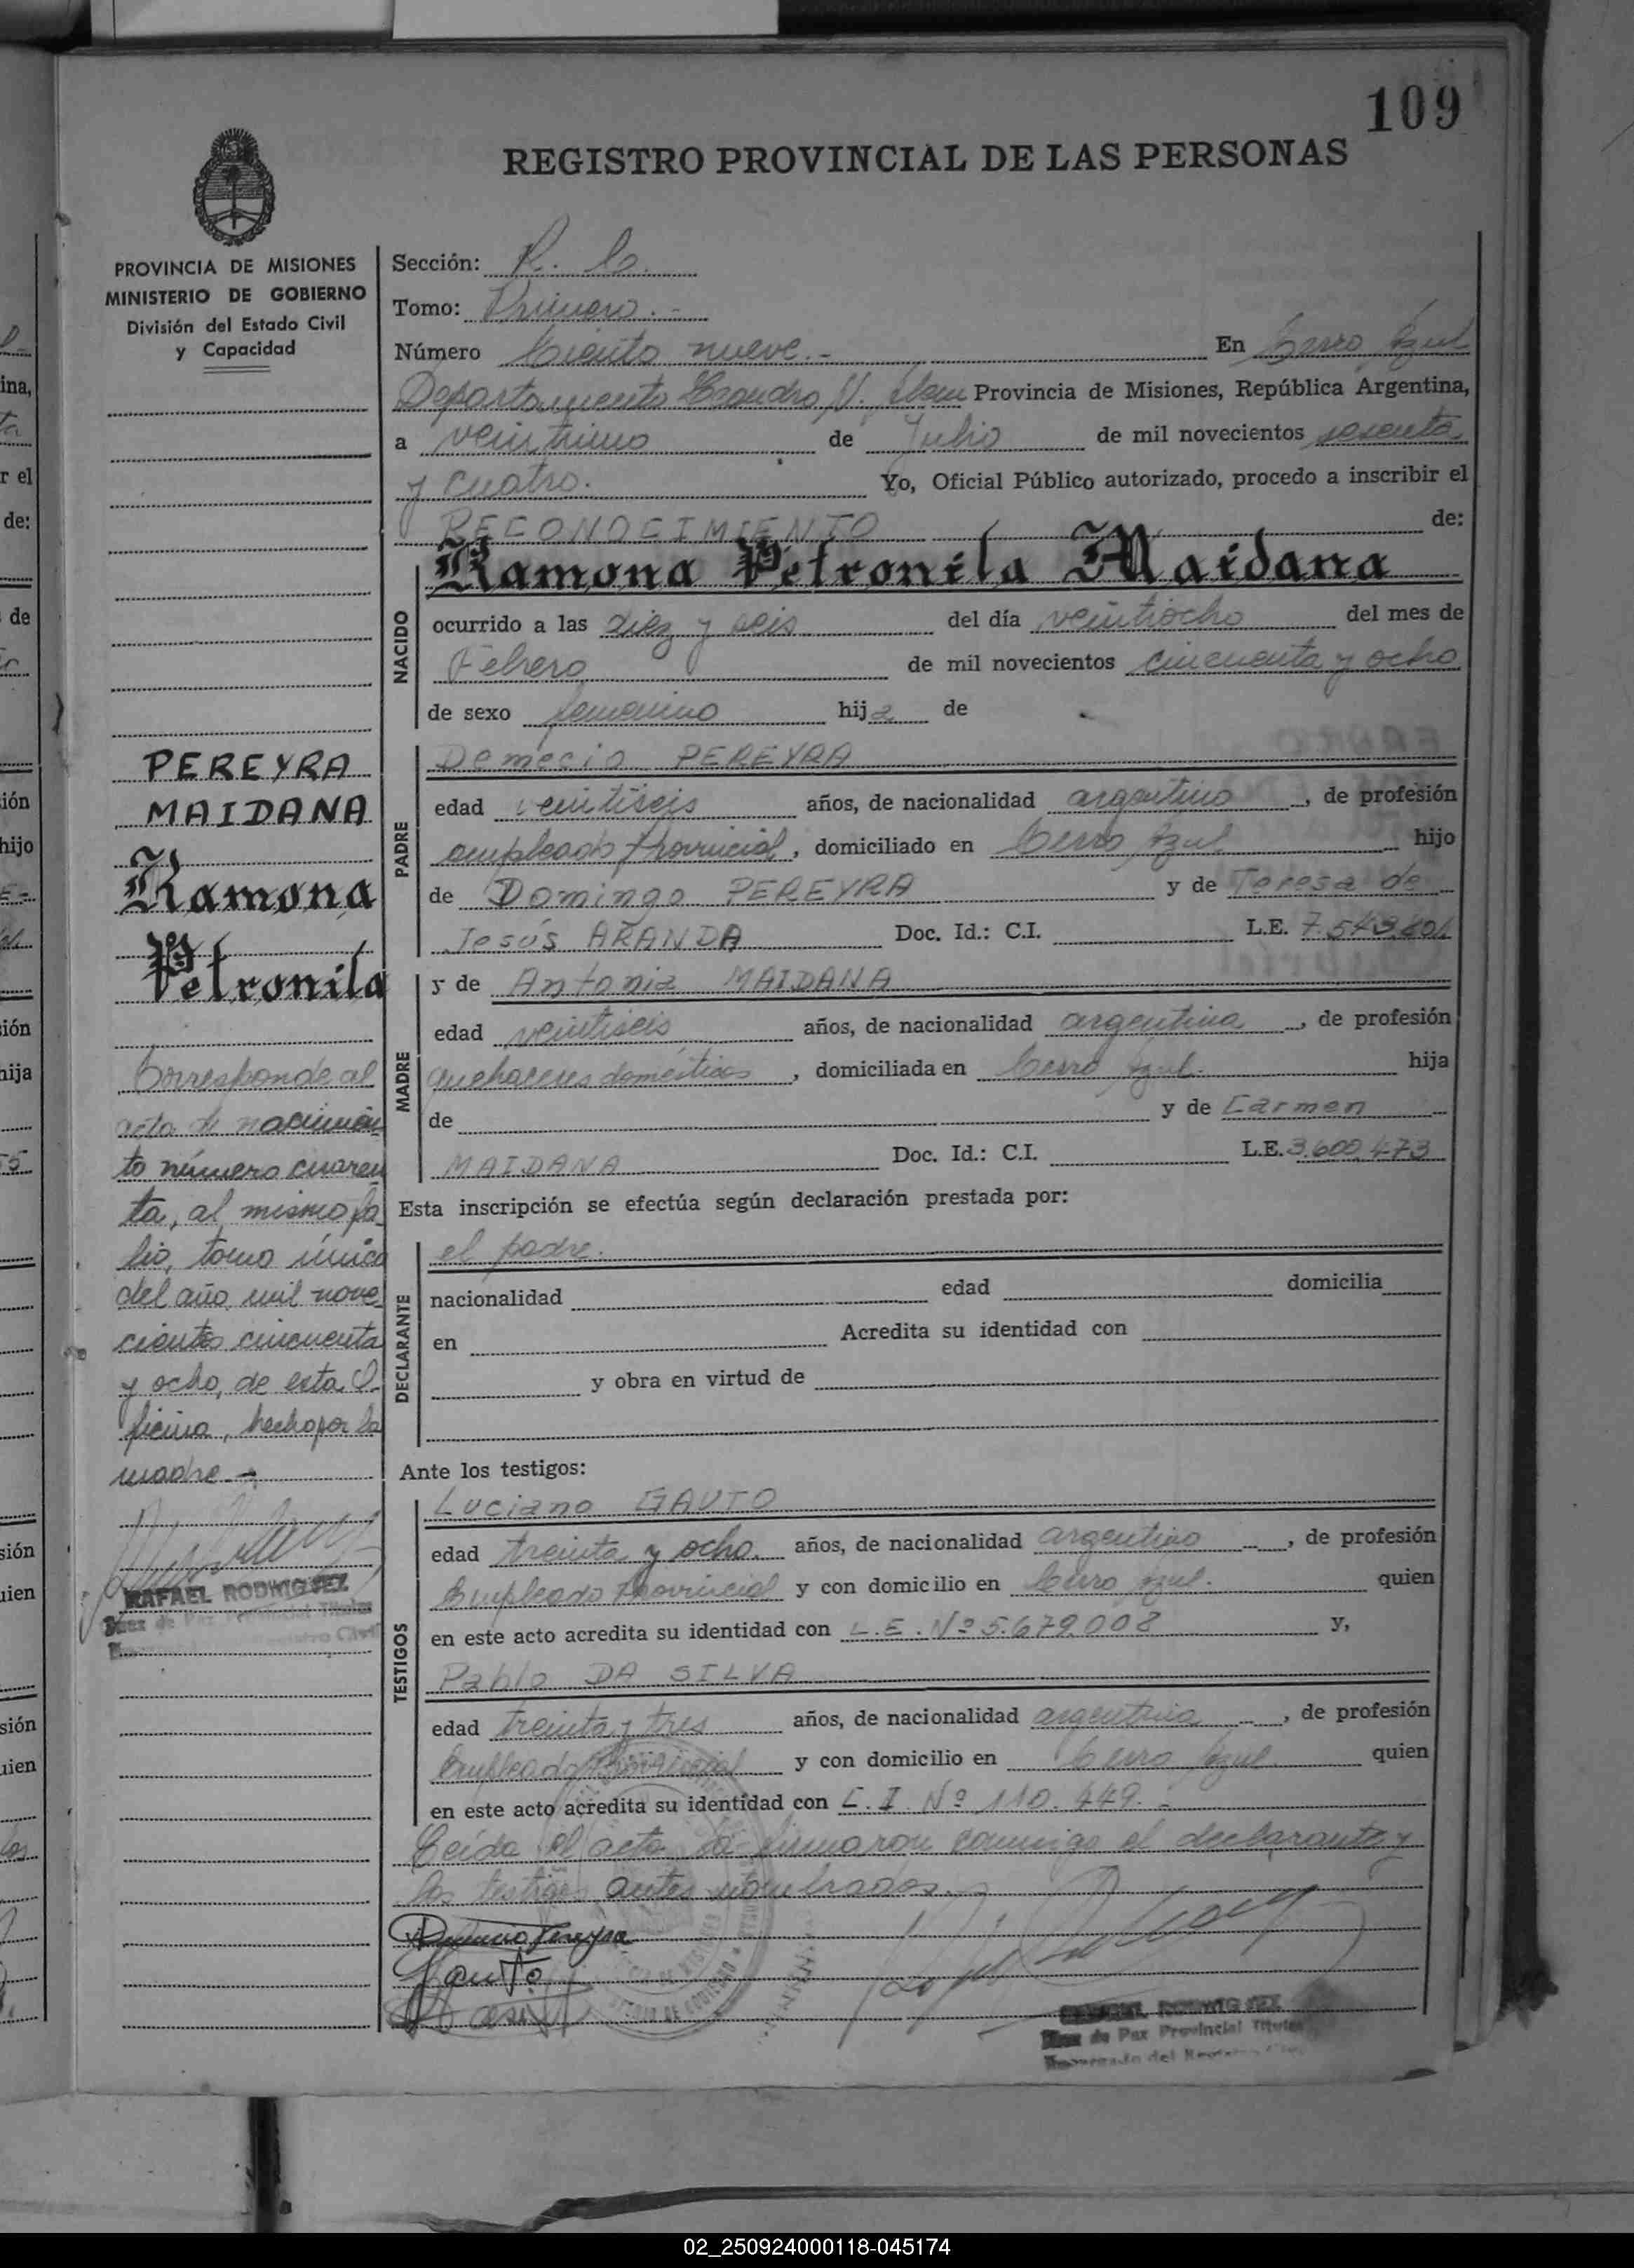 109
REGISTRO PROVINCIAL DE LAS PERSONAS
PROVINCIA DE MISIONES
MINISTERIO DE GOBIERNO
División del Estado Civil
y Capacidad
PEREYRA
MAIDANA
Ramona
Petronila
Corresponde al
acta de nacimien
to número cuaren
ta, al mismo fo
lio, tomo único
del año mil nove
cientos cincuenta
y ocho, de esta O
ficina, hecho por la
madre.-
RAFAEL RODRIGUEZ
Juez de Paz Provincial Titular
Sección: R. C.
Tomo: Primero.-
Número Ciento nueve.- En Cerro Azul
Departamento Leandro N. Alem Provincia de Misiones, República Argentina,
a veintiuno de Julio de mil novecientos sesenta
y cuatro. Yo, Oficial Público autorizado, procedo a inscribir el
RECONOCIMIENTO de:
NACIDO
Ramona Petronila Maidana
ocurrido a las diez y seis del día veintiocho del mes de
Febrero de mil novecientos cincuenta y ocho
de sexo femenino hija de
PADRE
Demecio PEREYRA
edad veintiseis años, de nacionalidad argentino, de profesión
empleado Provincial, domiciliado en Cerro Azul hijo
de Domingo PEREYRA y de Teresa de
Jesús ARANDA Doc. Id.: C.I. L.E. 7.543.801
MADRE
y de Antonia MAIDANA
edad veintiseis años, de nacionalidad argentina, de profesión
quehaceres domésticos, domiciliada en Cerro Azul. hija
de y de Carmen
MAIDANA Doc. Id.: C.I. L.E. 3.600.473
Esta inscripción se efectúa según declaración prestada por:
DECLARANTE
el padre.
nacionalidad edad domicilia
en Acredita su identidad con
y obra en virtud de
Ante los testigos:
TESTIGOS
Luciano GAUTO
edad treinta y ocho. años, de nacionalidad argentino, de profesión
Empleado Provincial y con domicilio en Cerro Azul. quien
en este acto acredita su identidad con L.E. Nº 5.679.008 y,
Pablo DA SILVA
edad treinta y tres años, de nacionalidad argentina, de profesión
Empleado Provincial y con domicilio en Cerro Azul quien
en este acto acredita su identidad con C.I. Nº 110.449.-
Leída el acta la firmaron conmigo el declarante y
los testigos antes nombrados.
Demecio Pereyra
Gauto
RODRIGUEZ
Juez de Paz Provincial Titular
Encargado del Registro Civil
02_250924000118-045174